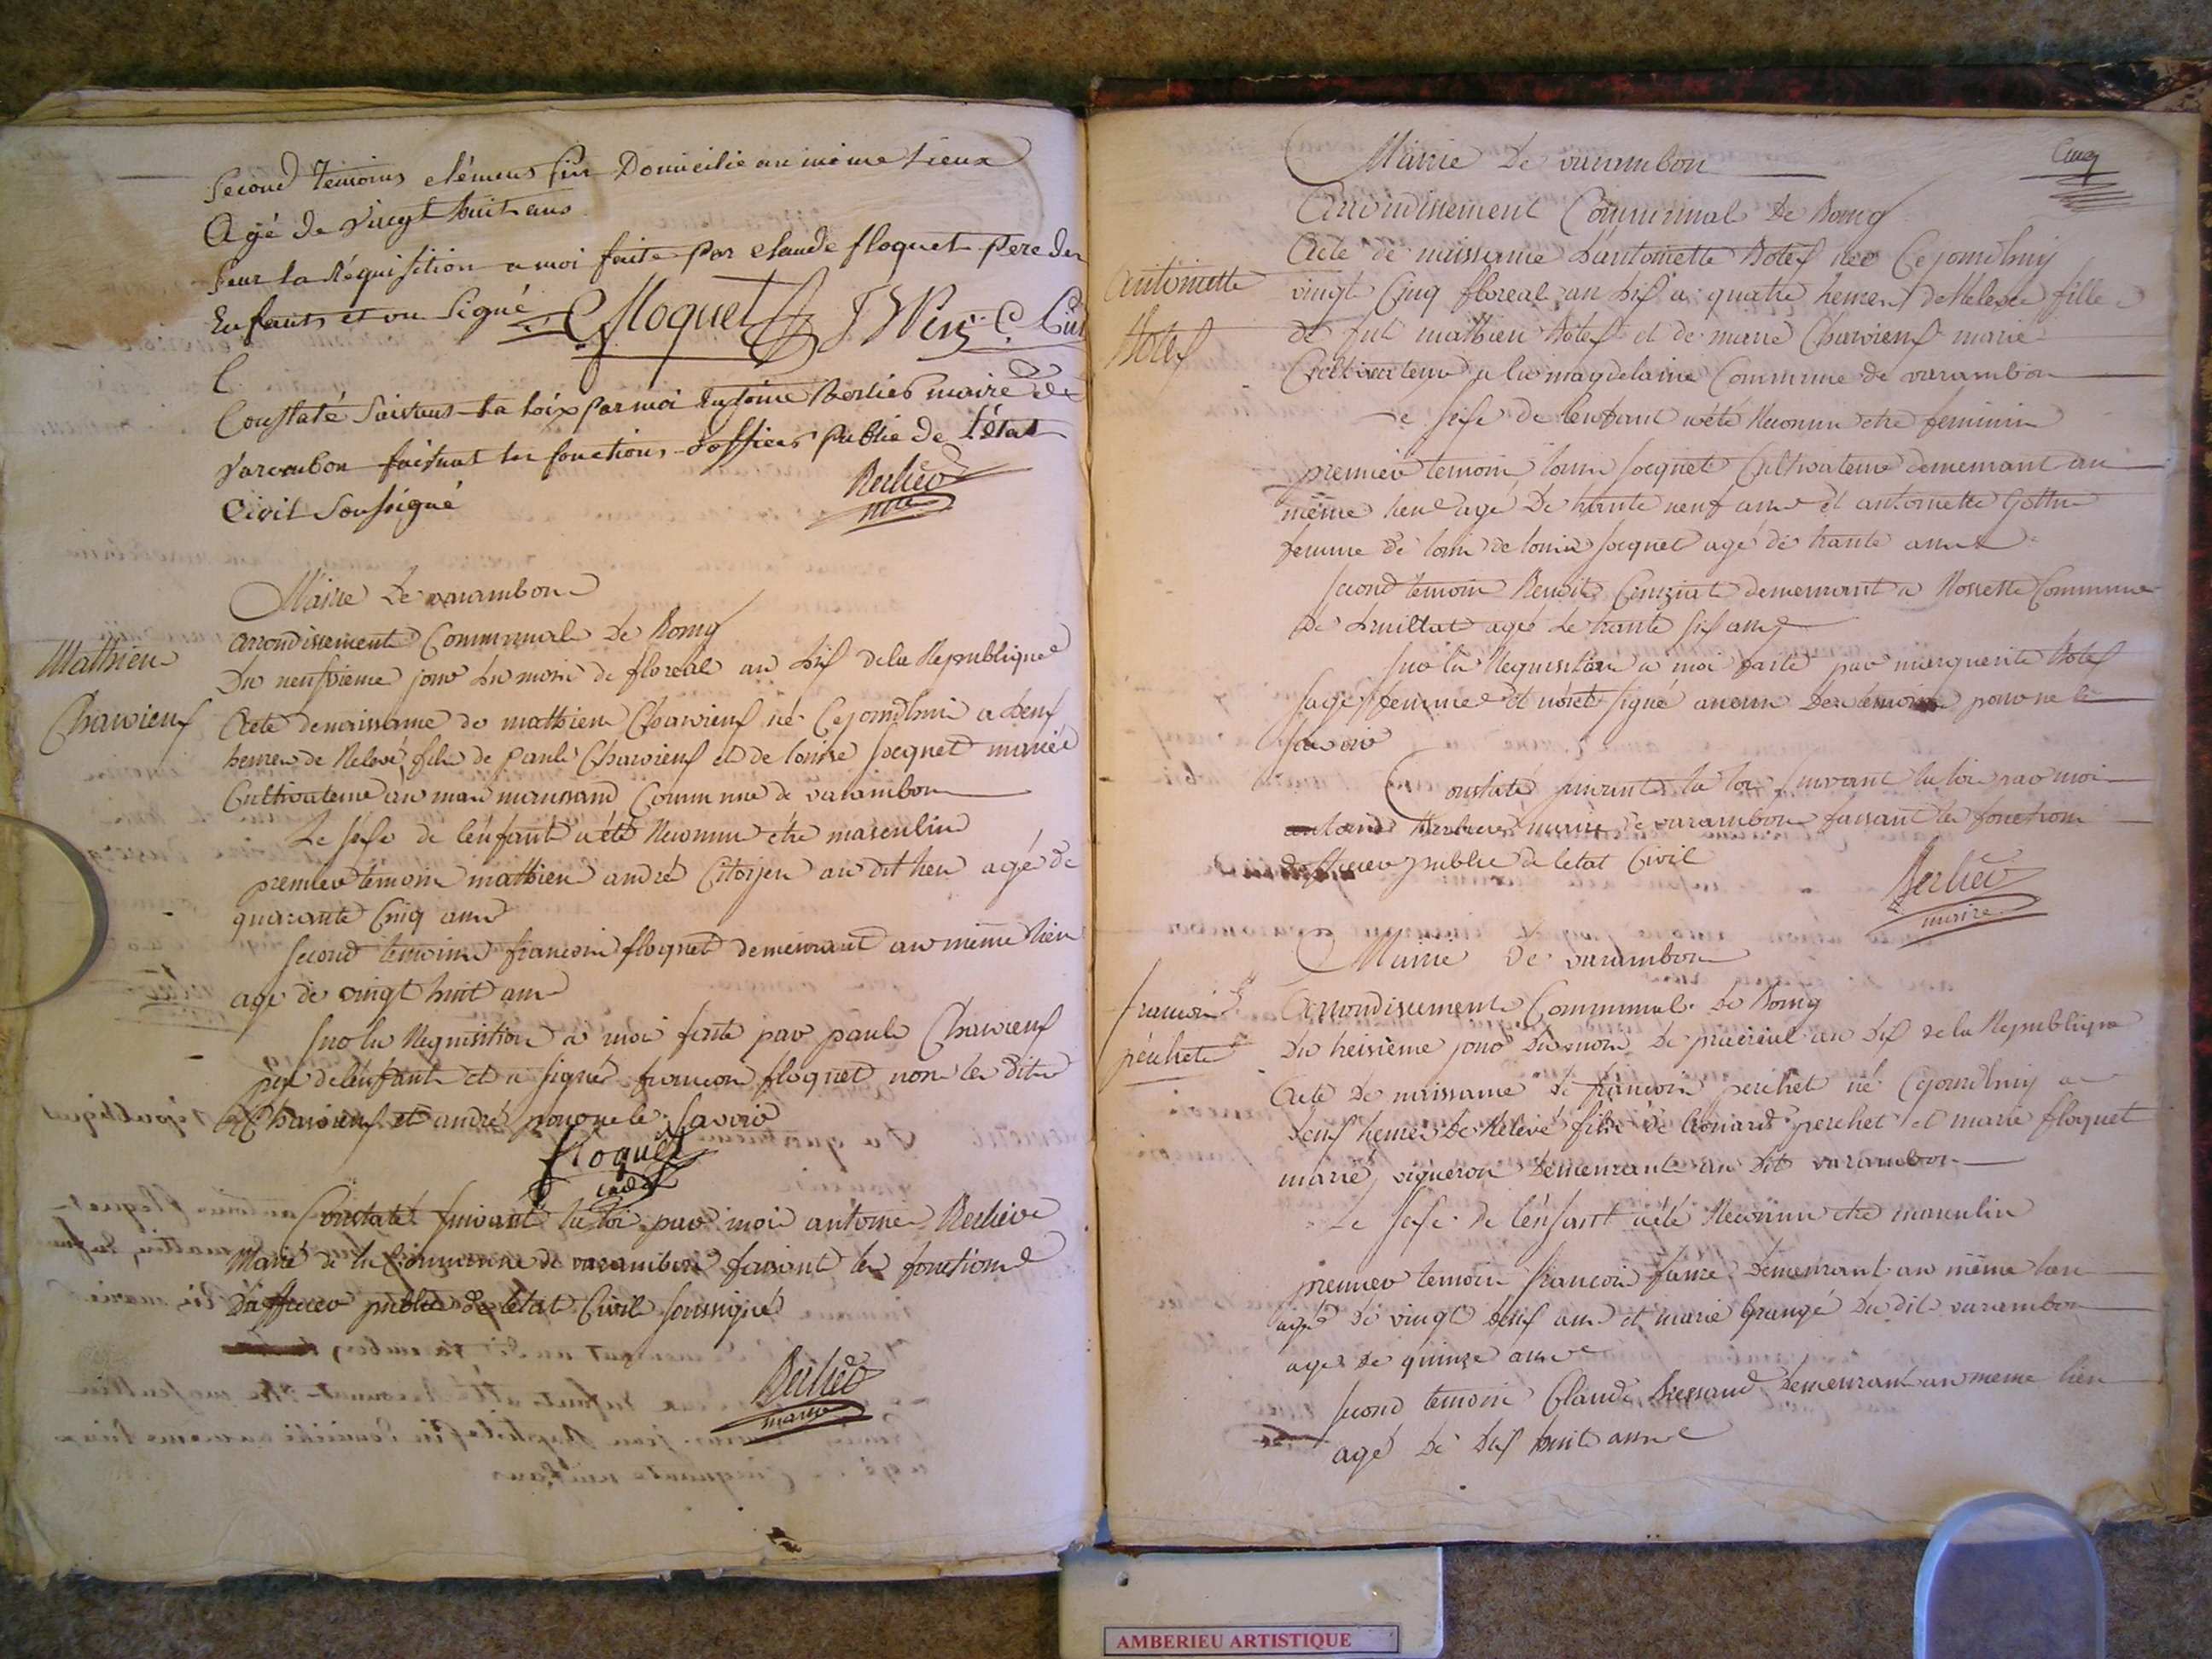 Second Temoins clémens fin Domicilie au même Lieux
Agé de vingt huit ans
Sur la Réquisition a moi faite par claude floquet pere des
Enfants et on Signé Cfloquet
Constaté Suivans la loix par moi Antoine Berlier maire de
varambon faisant les fonctions d'officier public de l'état
Civil Soussigné
Berlier
mre
Mairie De varambon
arrondissement Communal De Bourg
Mathieu
Du neufvieme jour du mois de floréal an dix de la Republique
Charvieux
Acte de naissance de mathieu Charvieux né Cejourdhui a deux
heures de Relevé fils de paul Charvieux et de louise Jocquet mariés
Cultivateur au mas Commune de varambon
Le sexe de lenfant a été Reconnu étre masculin
premier temoin mathieu andré Citoyen au dit lieu agé de
quarante Cinq ans
Second temoins francois floquet demeurant au même lieu
age de vingt huit ans
Sur la Requisition a moi faite par paul Charvieux
per de lenfant et a signé francois floquet non les dits
Charvieux et andré pour ne le savoir
floquet
cadet
Constaté suivant la loi par moi antoine Berlier
Maire de la Commune de varambon faisant les fonctions
d'officier public de letat Civil soussigné
Berlier
maire
Cinq
Mairie De varambon
Arrondissement Communal De Bourg
Acte de naissance dantoinette Botex née Cejourdhuy
antoinette
vingt Cinq floreal an dix a quatre heures de Releve fille
Botex
de fut mathieu Botex et de marie Charvieux marié
Cultivateur a la magdelaine Commune de varambon
Le sexe de lenfant a été Reconnu etre feminin
premier temoin louis Jocquet Cultivateur demeurant au
même lieu agé De trante neuf ans et antoinette
femme de louis de louis Jocquet agé de trante ans
Second temoin Benoit demeurant a Rossette Commune
de Druillat agé de trante six ans
Sur la Requisition a moi faite par marguerite Botex
sage femme et nont signé aucun Des temoins pour ne le
savoir
Constaté suivant la loi suivant la loi par moi
antoine Berlier maire de varambon faisant les fonctions
dofficier public de letat Civil
Berlier
maire
Mairie De varambon
francois
Arrondissement Communal De Bourg
perchet
Du treisième jour du mois De prairial an dix de la Republique
Acte De naissance de francois perchet né Cejourdhuy a
deux heures De Relevé fils de Léonard perchet et marie floquet
marié vigneron demeurant au dit varambon
Le sexe de lenfant a été Reconnu etre masculin
premier temoin francois demeurant au même lieu
agé de vingt deux ans et marie Grangé du dit varambon
agee De quinze ans
Second temoin Claude Bressand demeurant au meme lieu
agé De dix huit ans
AMBERIEU ARTISTIQUE